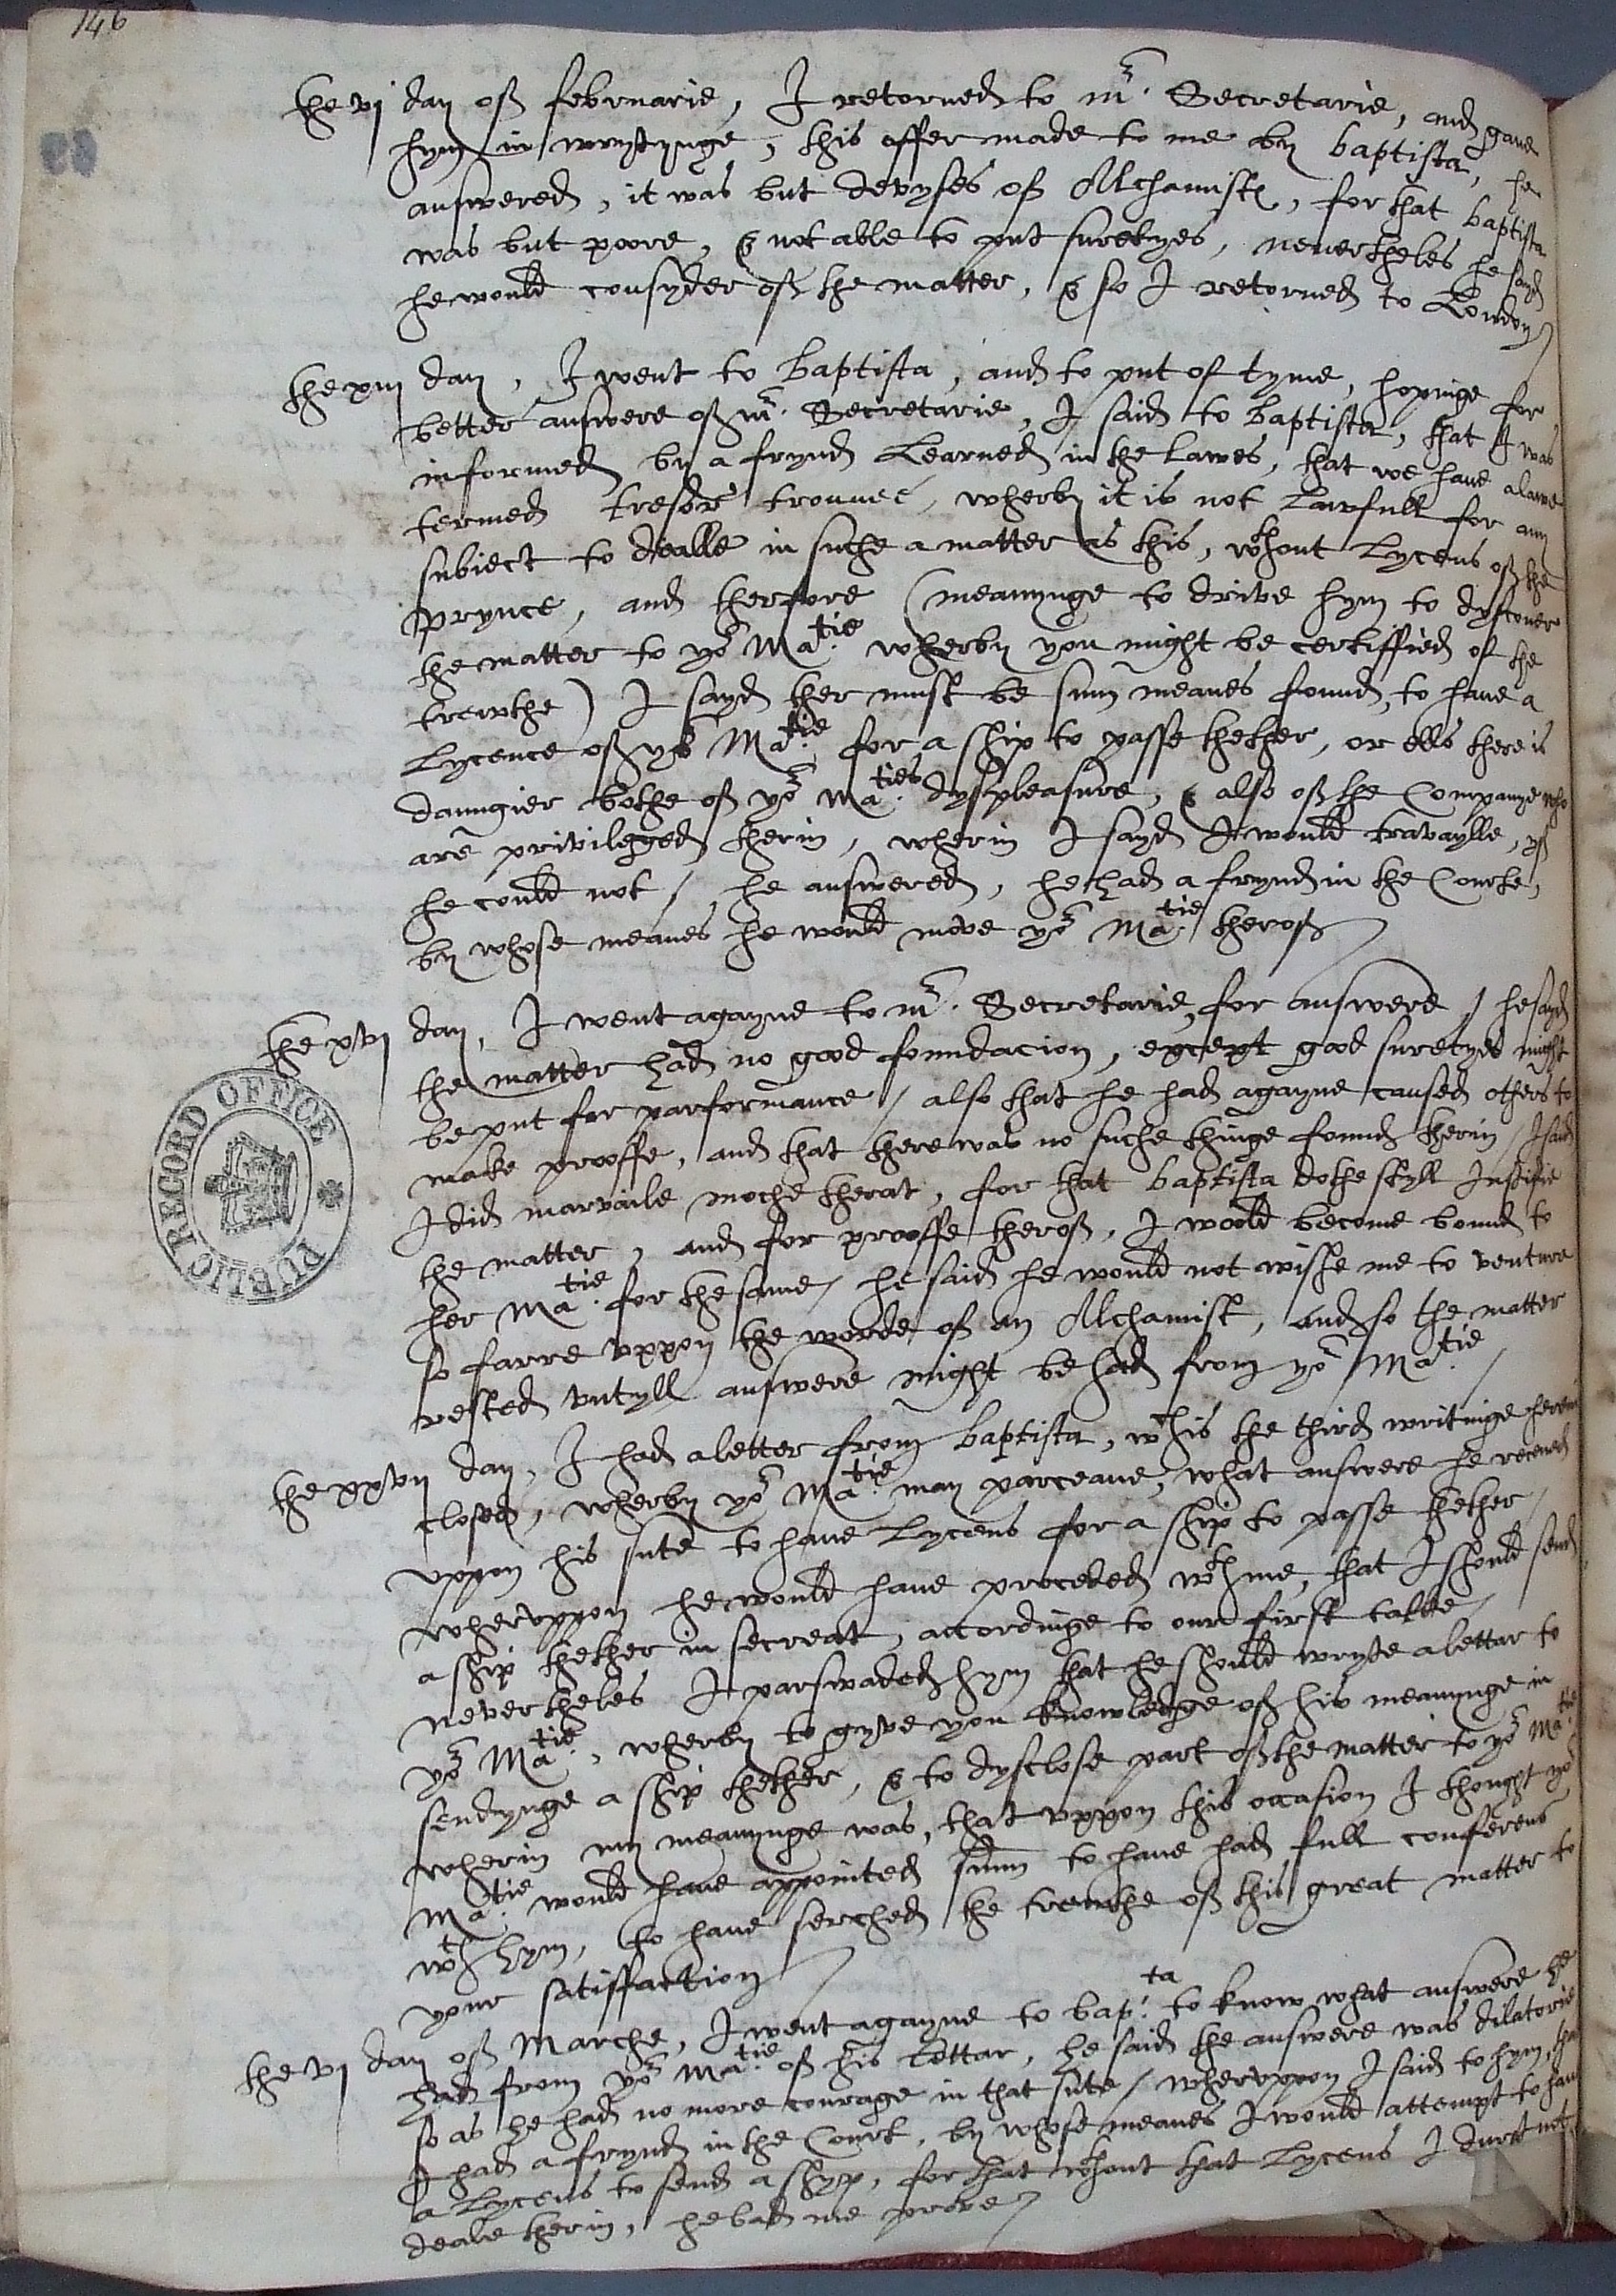 146
the vj day off februarie, I retorned to mr. Secretarie, and gave
hym in wrytynge, this offer made to me by baptista, he
answered, it was but devyses off Alchamistes, for that baptista
was but poore, & not able to put suretyes, neuertheles he sayd
he would consyder off the matter, & so I retorned to London /
the xiij day, I went to baptista, and to put of tyme, hopinge for
better answere off mr. Secretarie, I said to baptista, that I was
informed by a frynd Learned in the lawes, that we have a lawe
termed tresor trouueé, wherby it is not Lawfull for any
subiect to dealle in suche a matter as this, wthout Lycens off the
prynce, and therfore (meanynge to drive hym to dyscouer
the matter to yor Ma.tie wherby you might be certiffied of the
trewthe) I sayd ther must be sum meanes found, to have a
Lycence off yor Ma.tie for a ship to passe thether, or ells there is
daungier bothe off yor Ma.ties dyspleasure, & also off the Companye who
are privileged therin, wherin I sayd I would travaylle, yff
he could not / he answered, he had a frynd in the Courte,
by whose meanes he would move yor Ma.tie theroff /
the xvj day, I went agayne to mr. Secretarie, for answere / he sayd
the matter had no good foundacion, except good suretyes might
be put for parformance / also that he had agayne caused others to
make prooffe, and that there was no suche thinge found therin / I said
I did marvaile moche therat, for that baptista dothe styll Justifie
the matter, and for prooffe theroff, I woold become bound to
her Ma.tie for the same / he said he would not wishe me to venture
so farre vppon the worde off an Alchamist, and so the matter
rested vntyll answere might be had from yor Ma.tie /
the xxvij day, I had a letter from baptista, wch is the third writinge herein
closed, wherby yor Ma.tie may parceaue, what answere he receued
vppon his sute to have Lycens for a ship to passe thether /
whervppon he would have proceded wth me, that I should send
a ship thether in secreat, accordinge to our first talke /
nevertheles I parswaded hym that he should wryte a lettar to
yor Ma.tie, wherby to gyve you knowledge off his meanynge in
sendynge a ship thether, & to dysclose part off the matter to yor Ma.tie
wherin my meanynge was, that vppon this occasion I thought yor
Ma.tie would have appointed sum to have had full conferens
wth hym, to have serched the trewthe off this great matter to
your satisffaction /
the vj day off Marche, I went agayne to bap.ta to know what answere he
had from yor Ma.tie off his lettar, he said the answere was dilatorie
so as he had no more courage in that sute / whervppon I said to hym, that
I had a frynd in the Court, by whose meanes I would attempt to have
a Lycens to send a shyp, for that wthout that Lycens I durst not
deale therin, he bad me prove /
PUBLIC RECORD OFFICE